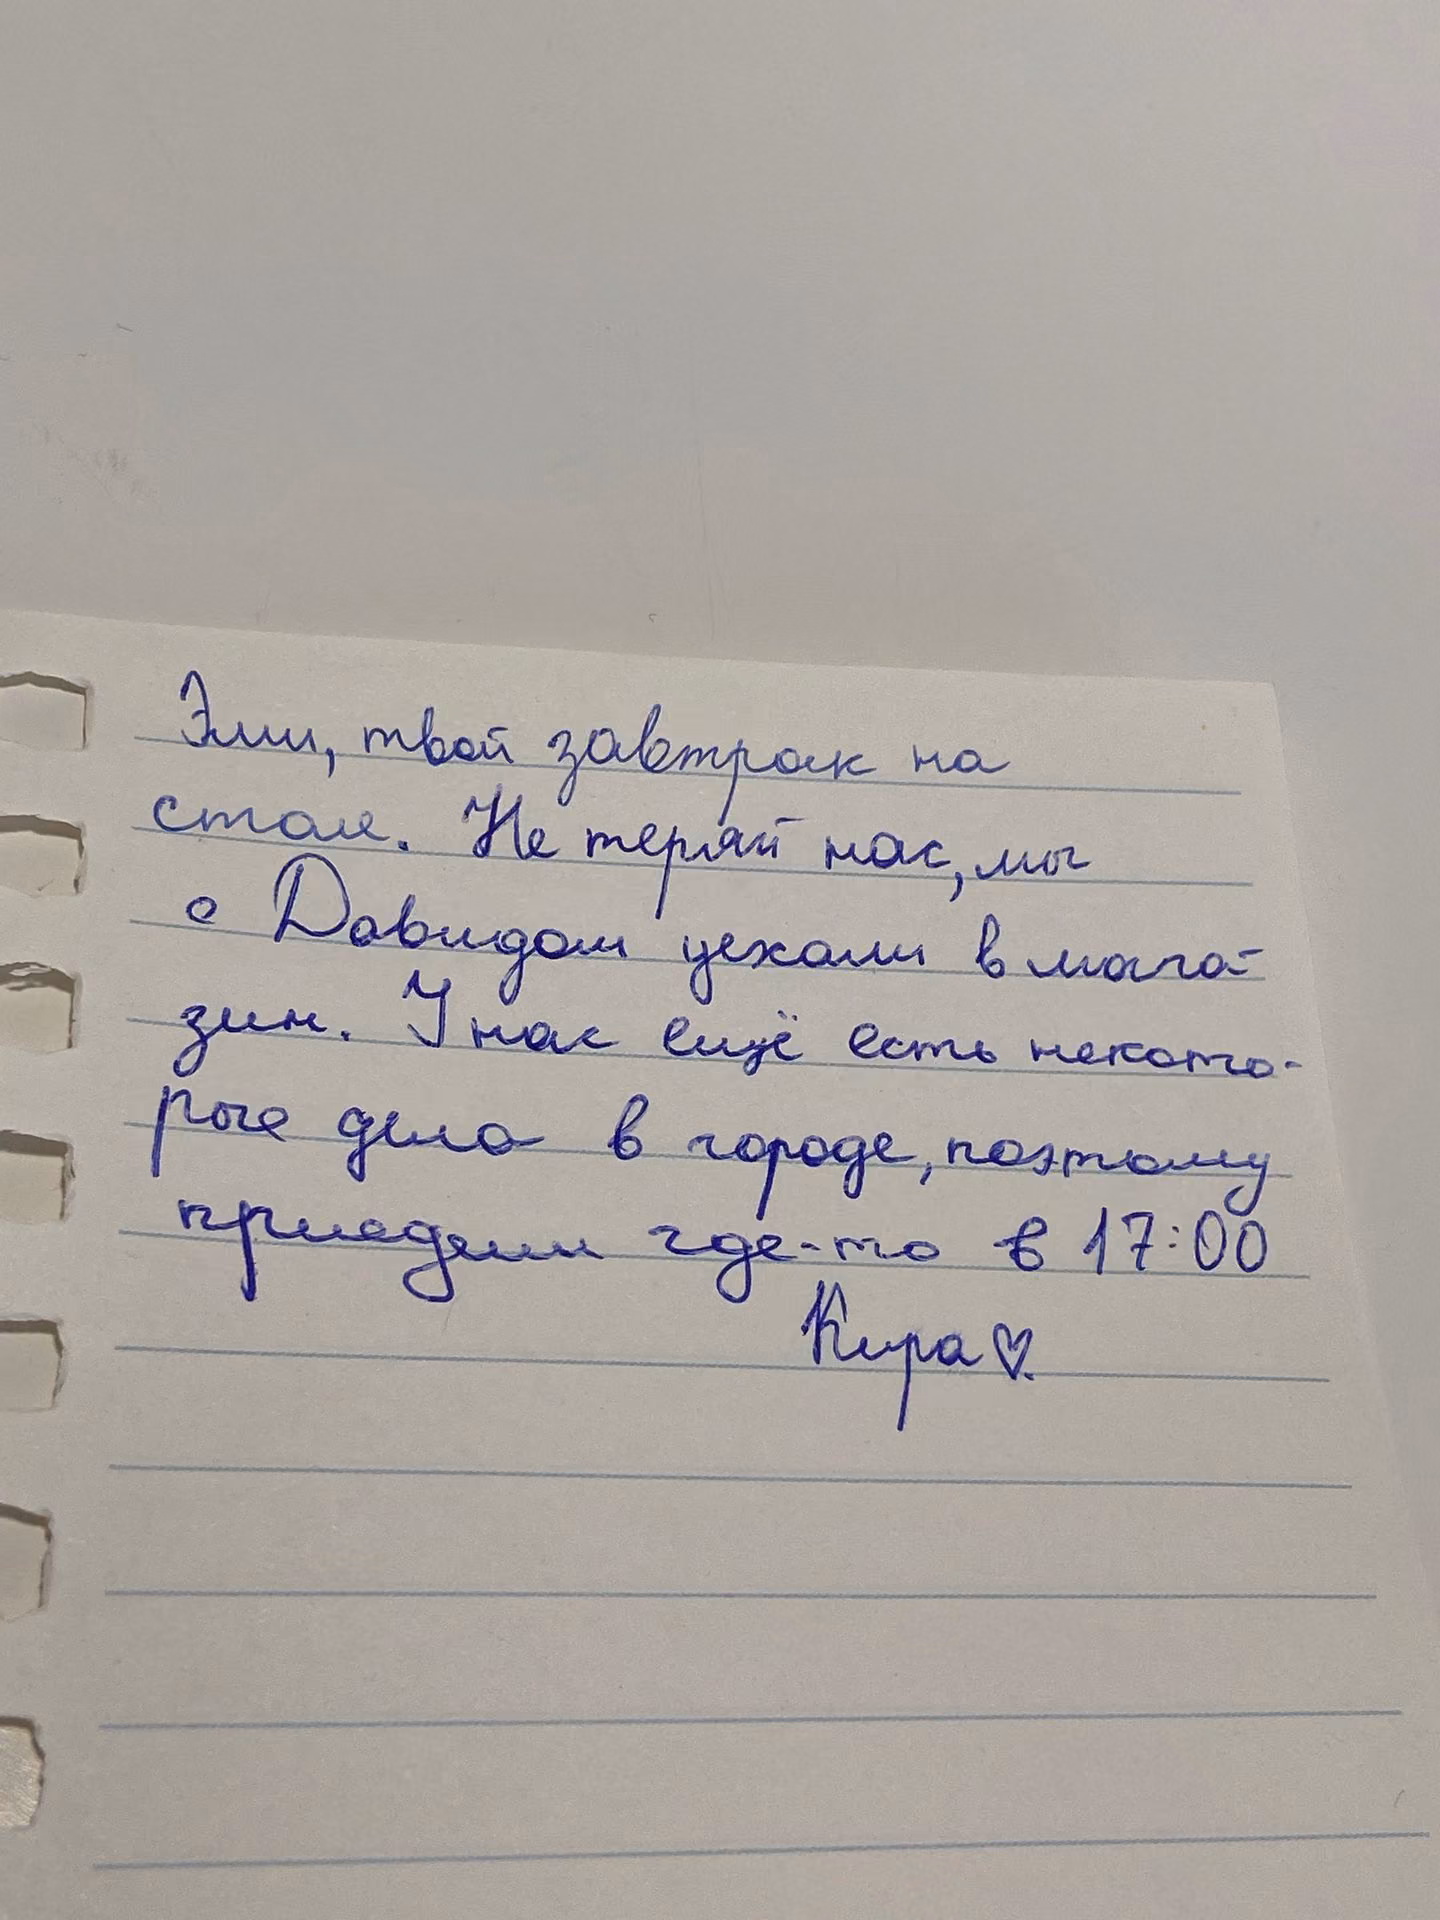 Эми, твой завтрак на
столе. Не теряй нас, мы
с Давидом уехали в мага-
зин. У нас ещё есть некото-
рые дела в городе, поэтому
приедем где-то в 17:00
Кира♡.